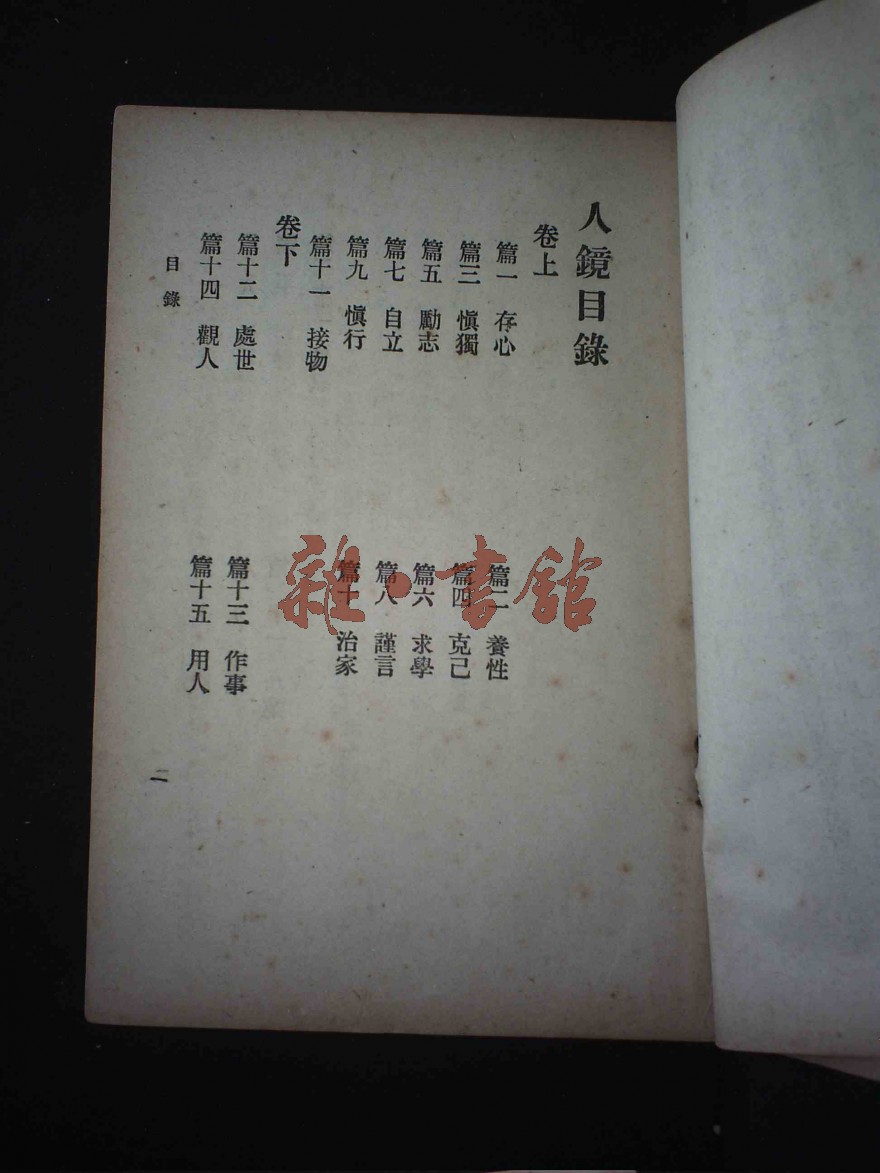 人鏡目錄
卷上
篇一 存心
篇二 養性
篇三 慎獨
篇四 克己
篇五 勵志
篇六 求學
篇七 自立
篇八 謹言
篇九 慎行
篇十 治家
篇十一 接物
卷下
篇十二 處世
篇十三 作事
篇十四 觀人
篇十五 用人
目錄
二
雜·書館